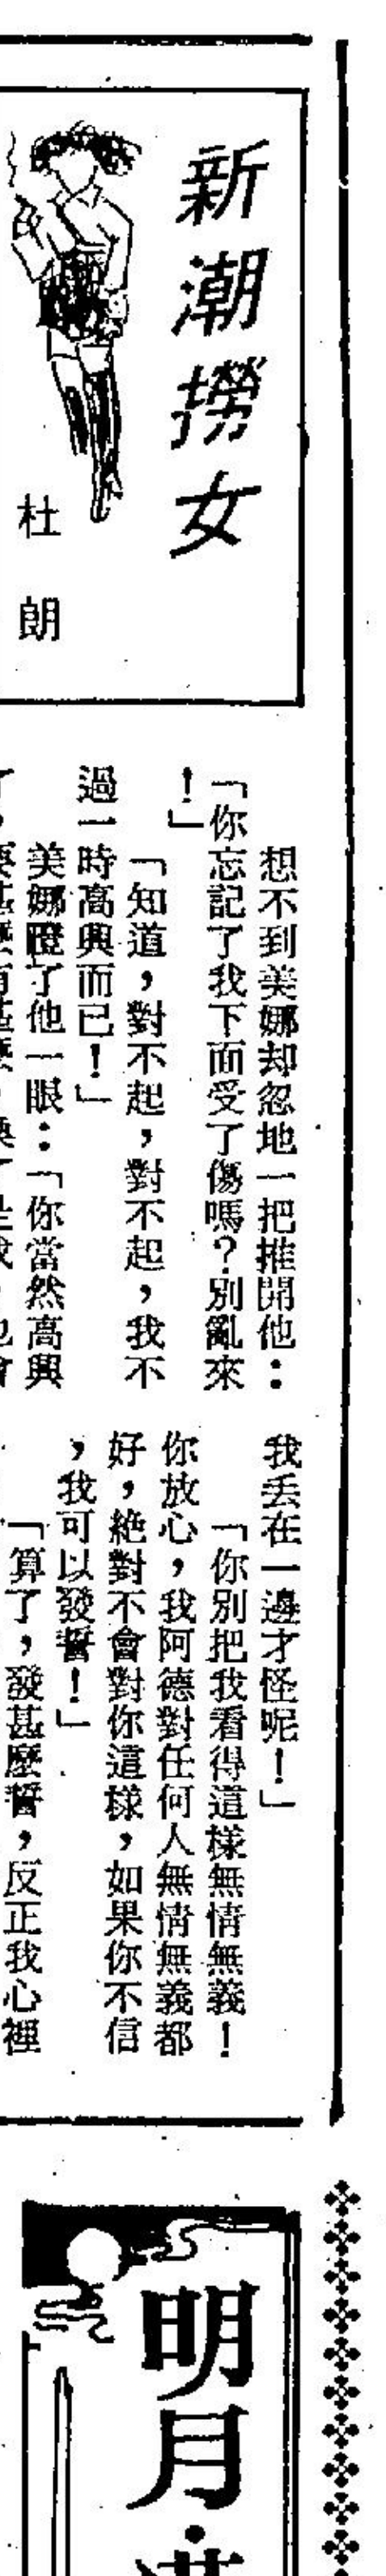 新潮撈女
杜朗
想不到美娜却忽地一把推開他：
「你忘記了我下面受了傷嗎？別亂來
！」
「知道，對不起，對不起，我不
過一時高興而已！」
美娜瞪了他一眼：「你當然高興
我丢在一邊才怪呢！」
「你別把我看得這樣無情無義！
你放心，我阿德對任何人無情無義都
好，絶對不會對你這樣，如果你不信
，我可以發誓！」
「算了，發甚麼誓，反正我心裡
明月·